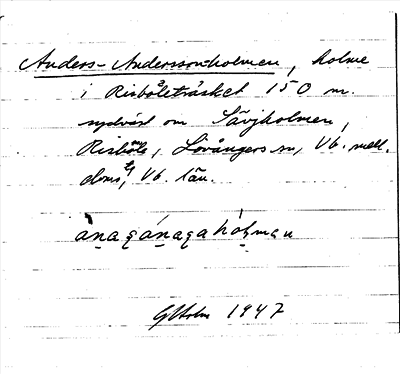 Anders-Anderssonholmen, holme
i Risböleträsket 150 m.
sydväst om Sävjholmen,
Risböle, Lövångers sn, Vb. mell.
doms, Vb. län.
1947